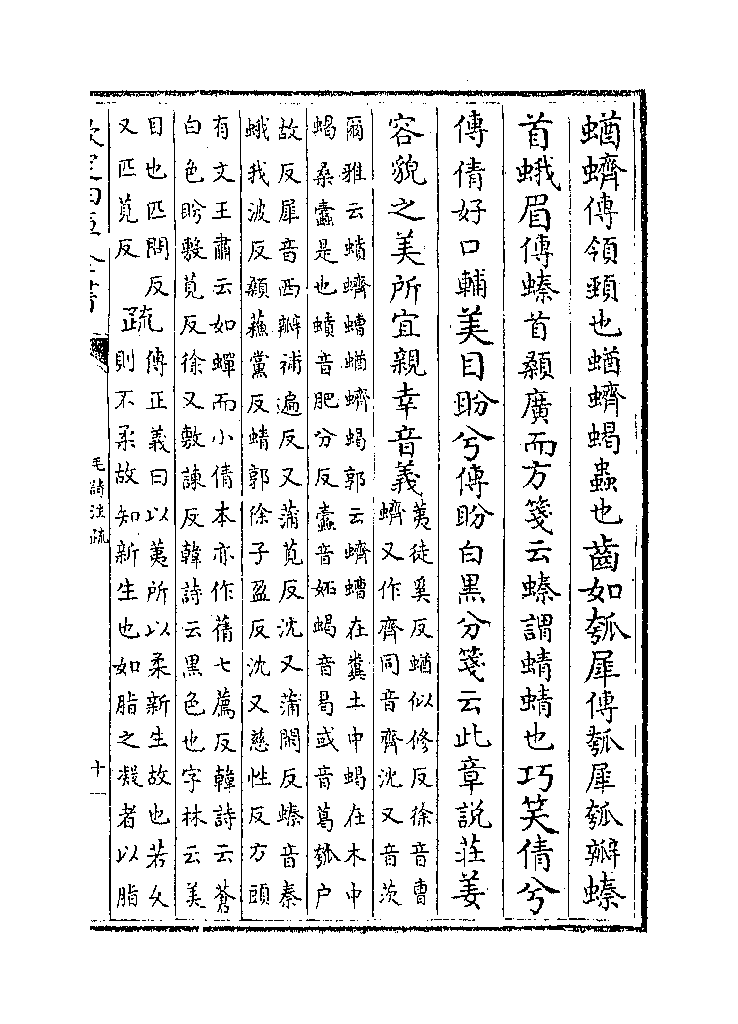 蝤蠐傳領頸也蝤蠐蝎蟲也齒如瓠犀傳瓠犀瓠瓣螓
首蛾眉傳螓首顙廣而方箋云螓謂蜻蜻也巧笑倩兮
傳倩好口輔美目盼兮傳盼白黒分箋云此章說莊姜
容貌之美所宜親幸音義
夷徒奚反蝤似修反徐音曹
蠐又作齊同音齊沈又音茨
爾雅云蟦蠐螬蝤蠐蝎郭云蠐螬在糞土中蝎在木中
蝎桑蠧是也蟦音肥分反蠧音妬蝎音曷或音葛瓠户
故反犀音西瓣補遍反又蒲莧反沈又蒲閑反螓音秦
蛾我波反顙蘇黨反蜻郭徐子盈反沈又慈性反方頭
有文王肅云如蟬而小倩本亦作蒨七薦反韓詩云蒼
白色盼敷莧反徐又敷諫反韓詩云黒色也字林云美
目也匹問反
又匹莧反
疏
傳正義曰以荑所以柔新生故也若久
則不柔故知新生也如脂之凝者以脂
毛詩注疏
十一